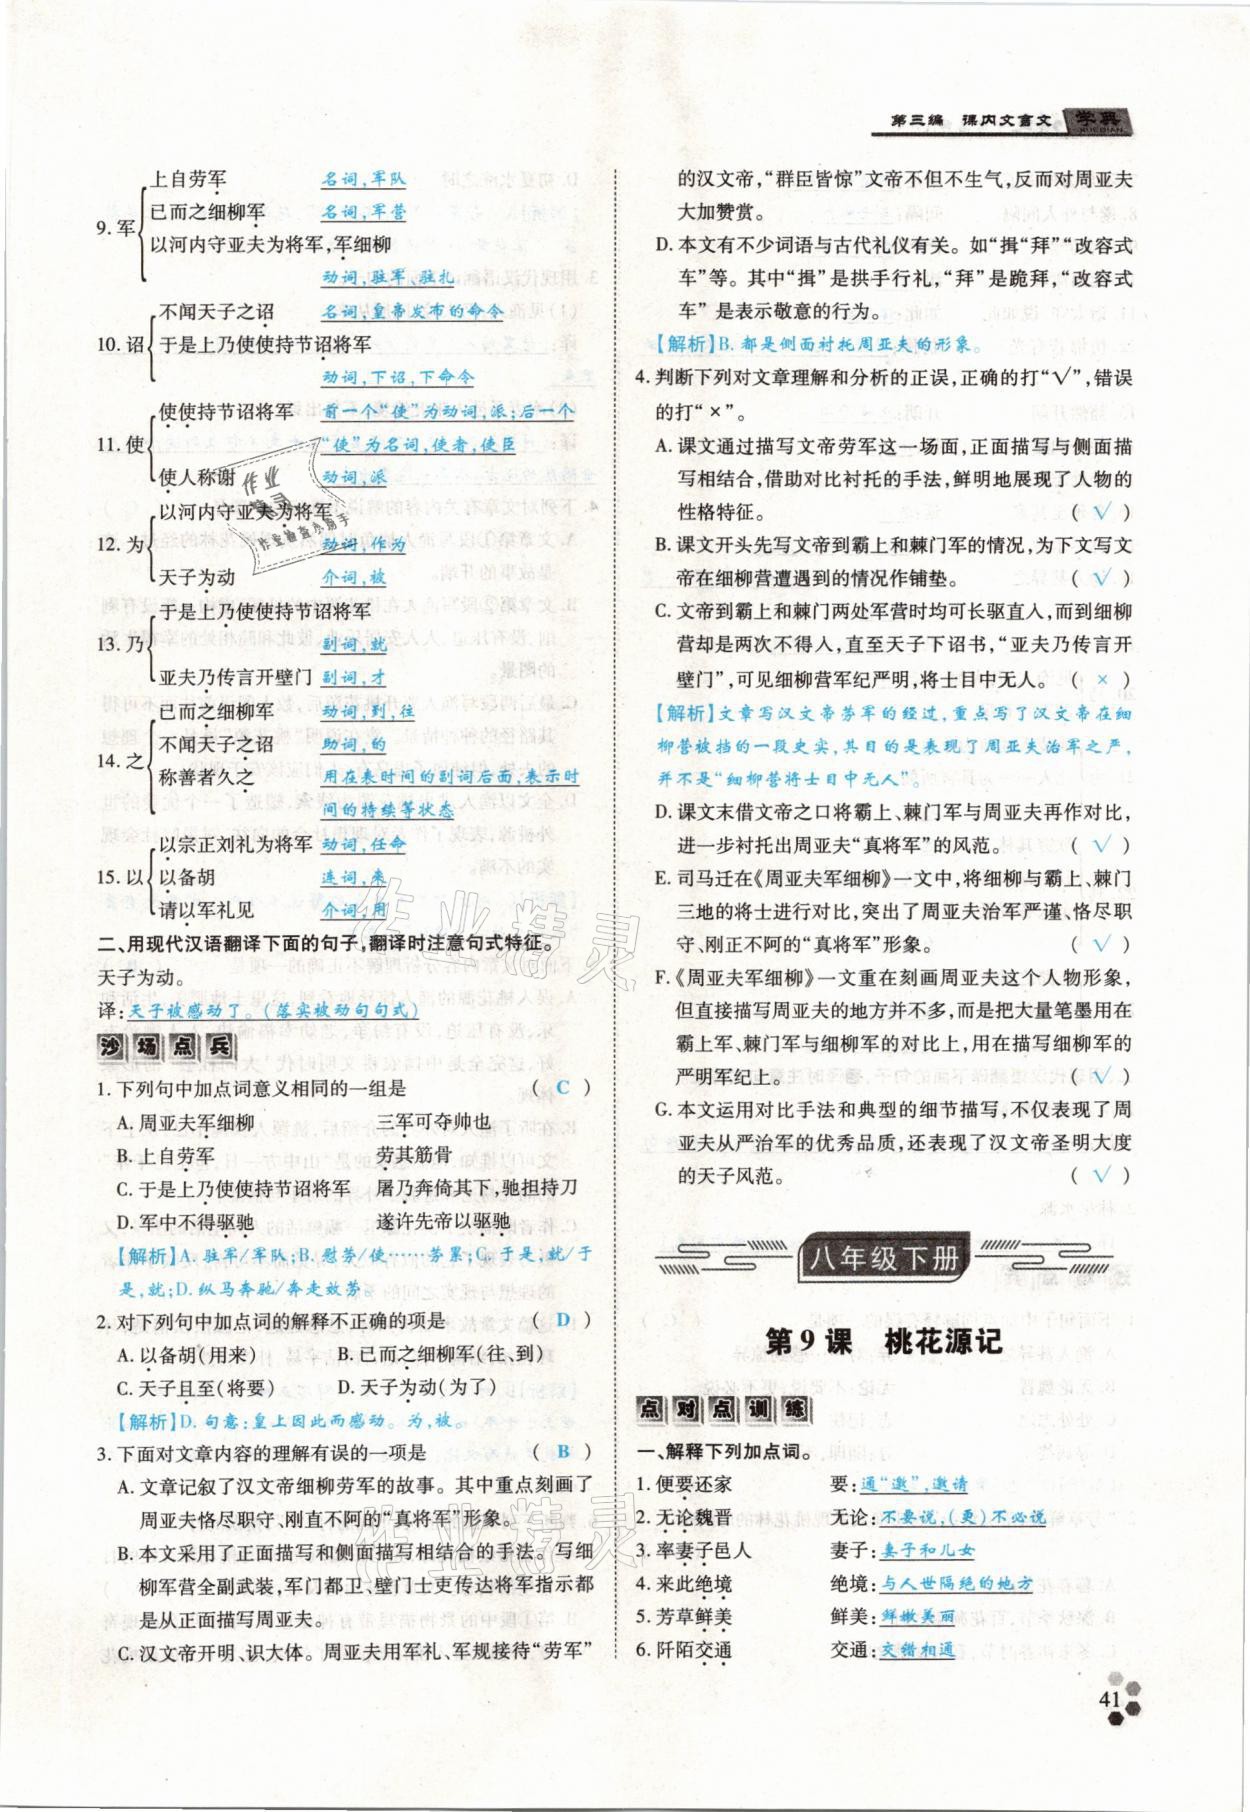 第三编 课内文言文 学典
XUEDIAN
上自劳军 名词,军队
已而之细柳军 名词,军营
9. 军
以河内守亚夫为将军,军细柳
动词,驻军,驻扎
不闻天子之诏 名词,皇帝发布的命令
10. 诏 于是上乃使使持节诏将军
动词,下诏,下命令
使使持节诏将军 前一个“使”为动词,派;后一个
11. 使 “使”为名词,使者,使臣
使人称谢 动词,派
以河内守亚夫为将军
12. 为 动词,作为
天子为动 介词,被
于是上乃使使持节诏将军
13. 乃 副词,就
亚夫乃传言开壁门 副词,才
已而之细柳军 动词,到,往
不闻天子之诏 助词,的
14. 之
称善者久之 用在表时间的副词后面,表示时
间的持续等状态
以宗正刘礼为将军 动词,任命
15. 以 以备胡 连词,来
请以军礼见 介词,用
二、用现代汉语翻译下面的句子,翻译时注意句式特征。
天子为动。
译:天子被感动了。(落实被动句句式)
沙场点兵
1. 下列句中加点词意义相同的一组是 ( C )
A. 周亚夫军细柳 三军可夺帅也
B. 上自劳军 劳其筋骨
C. 于是上乃使使持节诏将军 屠乃奔倚其下,弛担持刀
D. 军中不得驱驰 遂许先帝以驱驰
【解析】A. 驻军/军队;B. 慰劳/使……劳累;C. 于是,就/于
是,就;D. 纵马奔驰/奔走效劳
2. 对下列句中加点词的解释不正确的项是 ( D )
A. 以备胡(用来) B. 已而之细柳军(往、到)
C. 天子且至(将要) D. 天子为动(为了)
【解析】D. 句意:皇上因此而感动。为,被。
3. 下面对文章内容的理解有误的一项是 ( B )
A. 文章记叙了汉文帝细柳劳军的故事。其中重点刻画了
周亚夫恪尽职守、刚直不阿的“真将军”形象。
B. 本文采用了正面描写和侧面描写相结合的手法。写细
柳军营全副武装,军门都卫、壁门士吏传达将军指示都
是从正面描写周亚夫。
C. 汉文帝开明、识大体。周亚夫用军礼、军规接待“劳军”
的汉文帝,“群臣皆惊”文帝不但不生气,反而对周亚夫
大加赞赏。
D. 本文有不少词语与古代礼仪有关。如“揖”“拜”“改容式
车”等。其中“揖”是拱手行礼,“拜”是跪拜,“改容式
车”是表示敬意的行为。
【解析】B. 都是侧面衬托周亚夫的形象。
4. 判断下列对文章理解和分析的正误,正确的打“√”,错误
的打“×”。
A. 课文通过描写文帝劳军这一场面,正面描写与侧面描
写相结合,借助对比衬托的手法,鲜明地展现了人物的
性格特征。 ( √ )
B. 课文开头先写文帝到霸上和棘门军的情况,为下文写文
帝在细柳营遭遇到的情况作铺垫。 ( √ )
C. 文帝到霸上和棘门两处军营时均可长驱直人,而到细柳
营却是两次不得人,直至天子下诏书,“亚夫传言开
壁门”,可见细柳营军纪严明,将士目中无人。 ( × )
【解析】文章写汉文帝劳军的经过,重点写了汉文帝在细
柳营被挡的一段史实,其目的是表现了周亚夫治军之严,
并不是“细柳营将士目中无人”。
D. 课文末借文帝之口将霸上、棘门军与周亚夫再作对比,
进一步衬托出周亚夫“真将军”的风范。 ( √ )
E. 司马迁在《周亚夫军细柳》一文中,将细柳与霸上、棘门
三地的将士进行对比,突出了周亚夫治军严谨、恪尽职
守、刚正不阿的“真将军”形象。 ( √ )
F.《周亚夫军细柳》一文重在刻画周亚夫这个人物形象,
但直接描写周亚夫的地方并不多,而是把大量笔墨用在
霸上军、棘门军与细柳军的对比上,用在描写细柳军的
严明军纪上。 ( √ )
G. 本文运用对比手法和典型的细节描写,不仅表现了周
亚夫从严治军的优秀品质,还表现了汉文帝圣明大度
的天子风范。 ( √ )
八年级下册
第9课 桃花源记
点对点训练
一、解释下列加点词。
1. 便要还家 要:通“邀”,邀请
2. 无论魏晋 无论:不要说,(更)不必说
3. 率妻子邑人 妻子:妻子和儿女
4. 来此绝境 绝境:与人世隔绝的地方
5. 芳草鲜美 鲜美:鲜嫩美丽
6. 阡陌交通 交通:交错相通
41
作业精灵
作业精灵